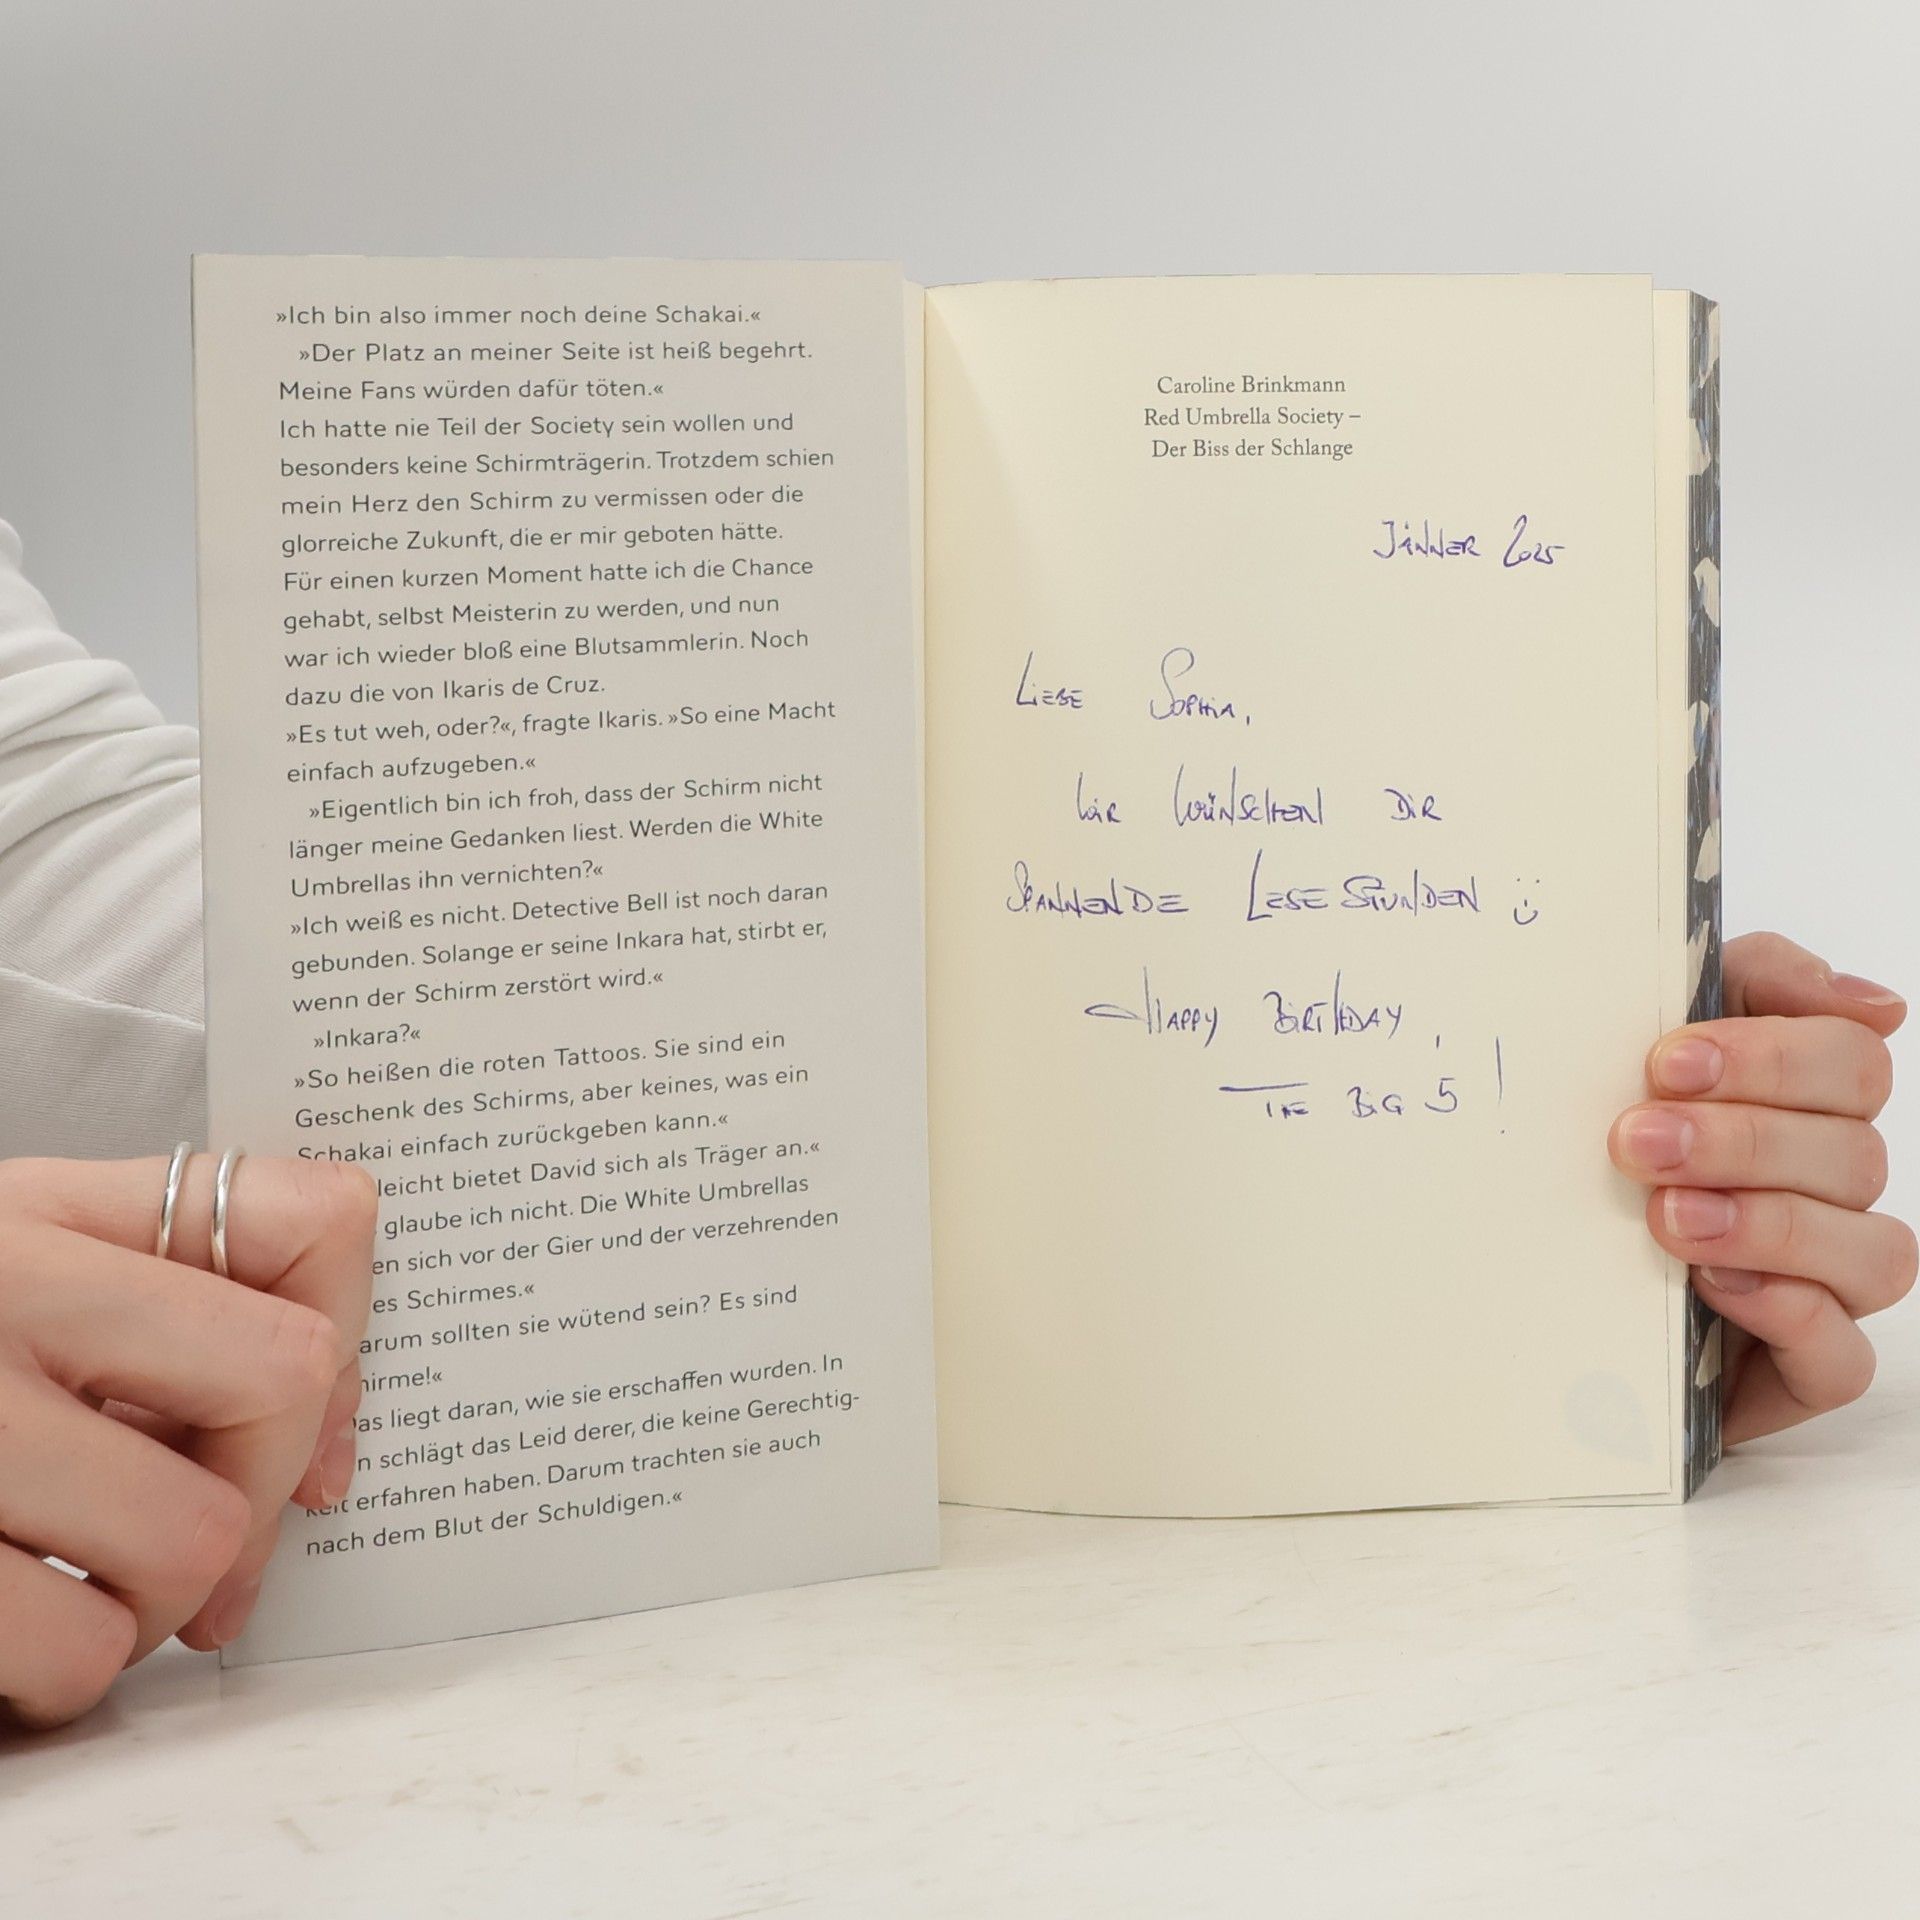 »Ich bin also immer noch deine Schakai.«
»Der Platz an meiner Seite ist heiß begehrt.
Meine Fans würden dafür töten.«
Ich hatte nie Teil der Society sein wollen und
besonders keine Schirmträgerin. Trotzdem schien
mein Herz den Schirm zu vermissen oder die
glorreiche Zukunft, die er mir geboten hätte.
Für einen kurzen Moment hatte ich die Chance
gehabt, selbst Meisterin zu werden, und nun
war ich wieder bloß eine Blutsammlerin. Noch
dazu die von Ikaris de Cruz.
»Es tut weh, oder?«, fragte Ikaris. »So eine Macht
einfach aufzugeben.«
»Eigentlich bin ich froh, dass der Schirm nicht
länger meine Gedanken liest. Werden die White
Umbrellas ihn vernichten?«
»Ich weiß es nicht. Detective Bell ist noch daran
gebunden. Solange er seine Inkara hat, stirbt er,
wenn der Schirm zerstört wird.«
»Inkara?«
»So heißen die roten Tattoos. Sie sind ein
Geschenk des Schirms, aber keines, was ein
Schakai einfach zurückgeben kann.«
leicht bietet David sich als Träger an.«
glaube ich nicht. Die White Umbrellas
en sich vor der Gier und der verzehrenden
es Schirmes.«
arum sollten sie wütend sein? Es sind
irme!«
as liegt daran, wie sie erschaffen wurden. In
n schlägt das Leid derer, die keine Gerechtig-
keit erfahren haben. Darum trachten sie auch
nach dem Blut der Schuldigen.«
Caroline Brinkmann
Red Umbrella Society –
Der Biss der Schlange
JÄNNER 2025
LIEBE SOPHIA,
WIR WÜNSCHEN DIR
SPANNENDE LESESTUNDEN :)
HAPPY BIRTHDAY,
THE BIG 5!